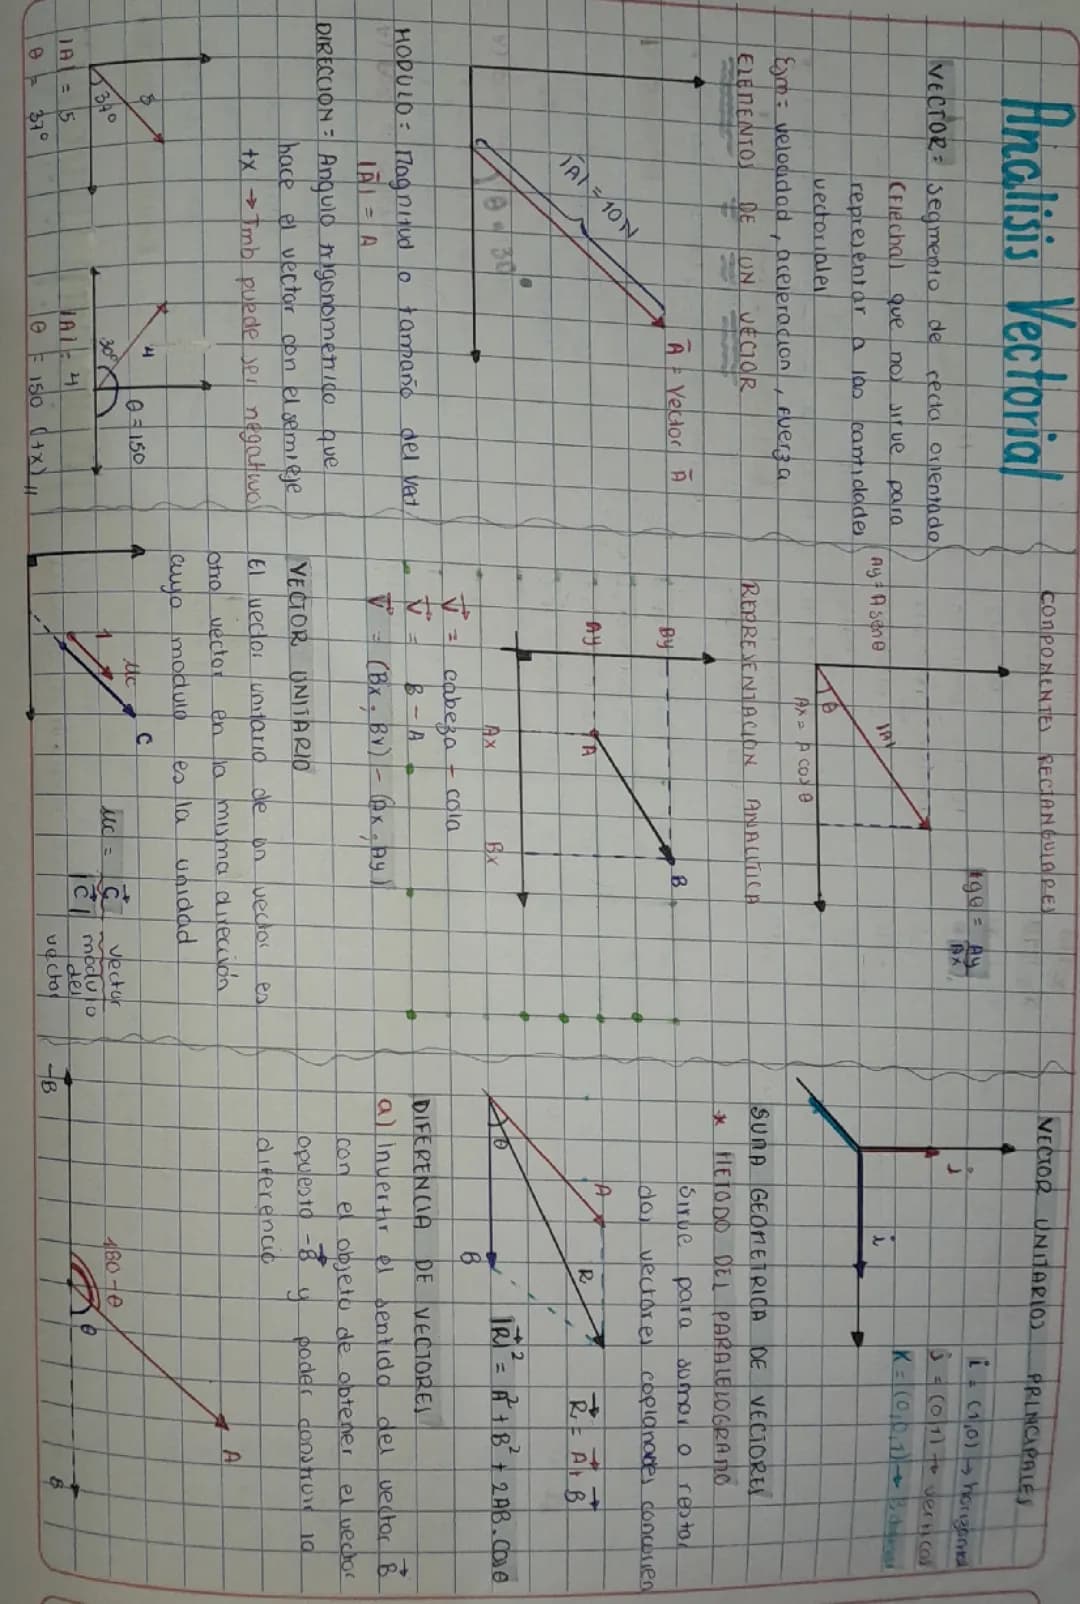 Analisis Vectorial
VECTOR = segmento de recta orientado
(flecha) que nos sirve para
representar a las cantidades
vectoriales
Ejm = velocidad, aceleracion, fuerza
ELEMENTOS DE UN VECTOR
A = Vector A
|A| = 10N
θ = 30°
MODULO = Magnitud o tamaño del Vect.
|A| = A
DIRECCION = Angulo trigonometrico que
hace el vector con el semieje
+x → Tmb puede ser negativo
5
37°
|A| = 5
θ = 37°
4
30°
θ = 150
|A| = 4
θ = 150 (+x) //
COMPONENTES RECTANGULARES
tgθ = Ay/Ax
|A|
θ
Ay = A senθ
Ax = A cosθ
REPRESENTACION ANALITICA
By
Ay
A
B
Ax
Bx
V = cabeza - cola
V = B - A
V = (Bx, By) - (Ax, Ay)
VECTOR UNITARIO
El vector unitario de un vector es
otro vector en la misma dirección
cuyo modulo es la unidad
1
μc
C
μc = C/|C|
vector
modulo
del
vector
VECTOR UNITARIOS PRINCIPALES
i = (1,0) → horizontal
j = (0,1) → vertical
K = (0,0,1) →
j
i
SUMA GEOMETRICA DE VECTORES
* METODO DEL PARALELOGRAMO
Sirve para sumar o restar
dos vectores coplanares concurren
A
R
B
θ
R = A + B
|R|² = A² + B² + 2AB.cosθ
DIFERENCIA DE VECTORES
a) Invertir el sentido del vector B
con el objeto de obtener el vector
opuesto -B y poder construir la
diferencia
180-θ
θ
A
-B
B